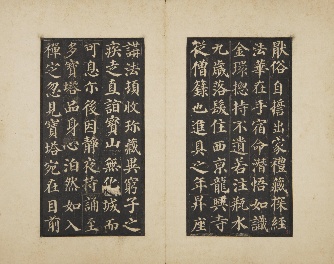 猒俗自誓出家禮藏探經
法華在手宿命潛悟如識
金環摠持不遺若注瓶水
九歲落髮住西京龍興寺
從僧籙也進具之年昇座
講法頓收珍藏異窮子之
疾走直詣寶山無化城而
可息尒後因靜夜持誦至
多寶塔品身心泊然如入
禪定忽見寶塔宛在目前